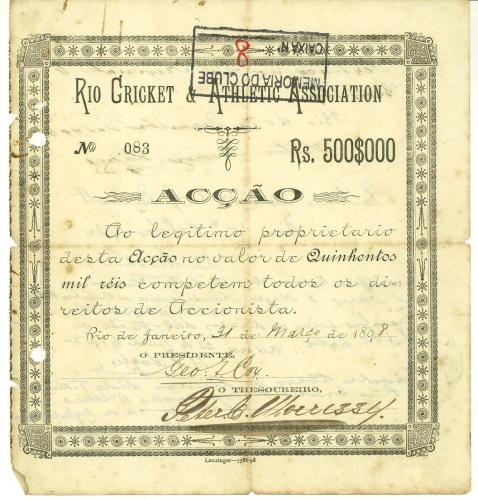 MEMORIA DO CLUBE
CAIXA N 8
RIO CRICKET & ATHLETIC ASSOCIATION
No 083 Rs. 500$000
ACÇÃO
Ao legitimo proprietario
desta Acção no valor de Quinhentos
mil réis competem todos os di-
reitos de Accionista.
Rio de Janeiro, 31 de Março de 1898
O PRESIDENTE,
Geo L Cox
O THESOUREIRO,
Peter C. Morrissy.
Leuzinger—1586-98